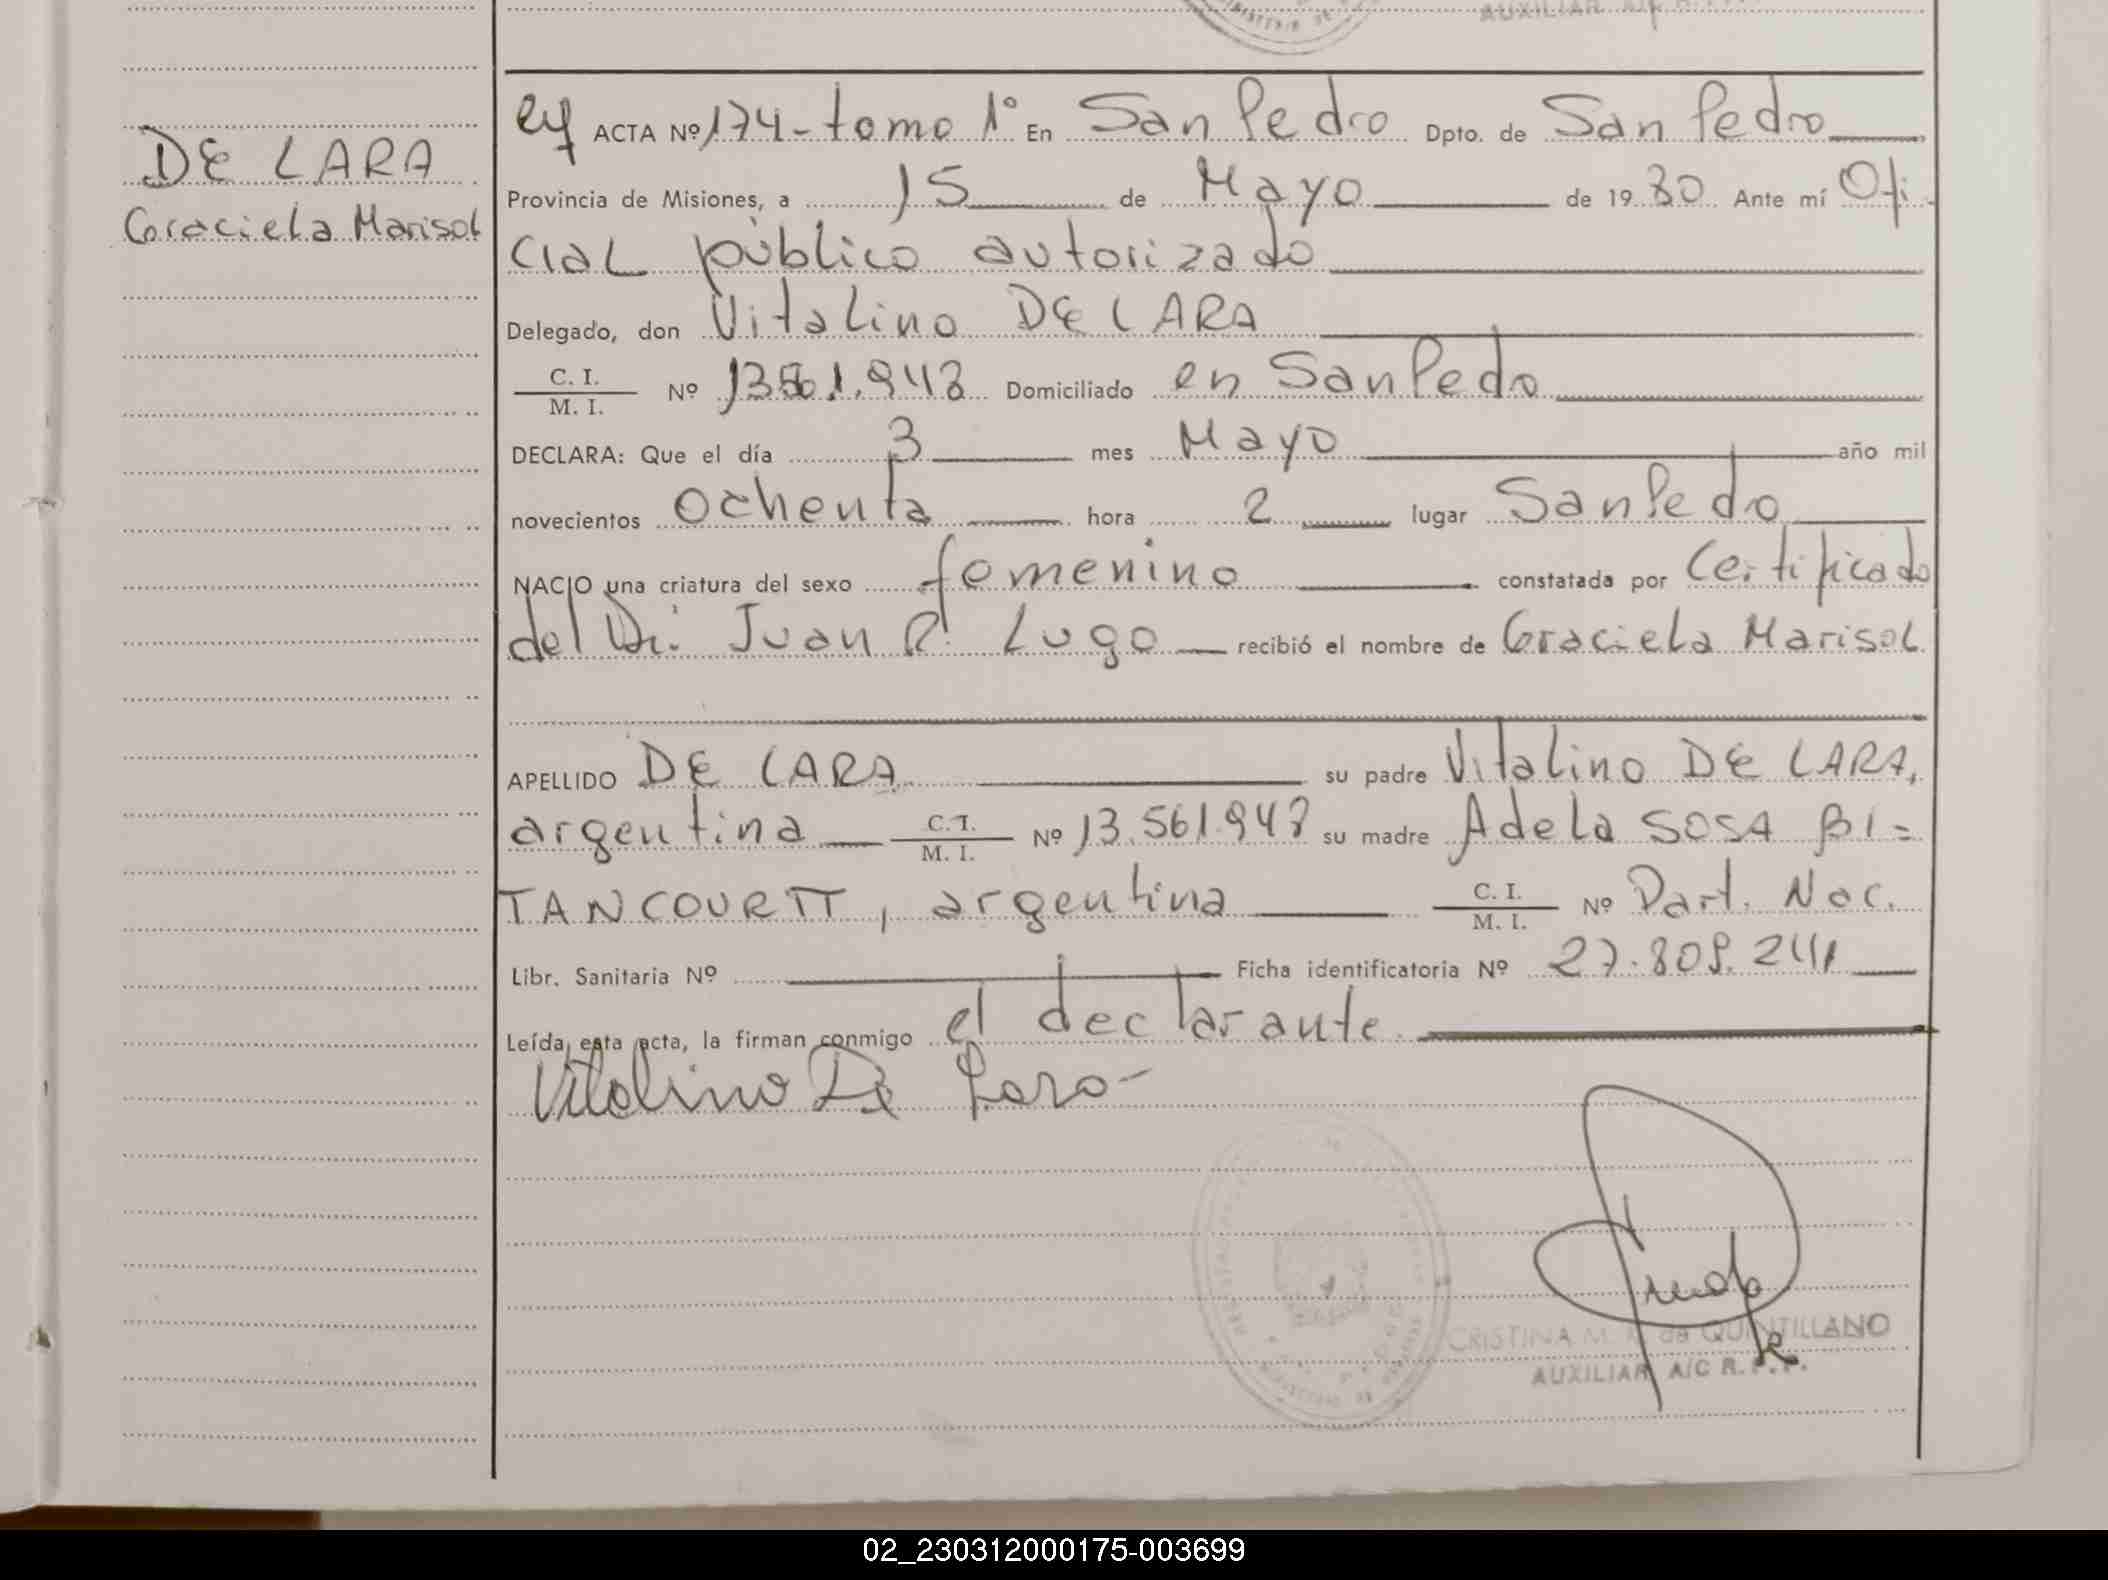 AUXILIAR A/C R.P.P.
MINISTERIO DE
ey ACTA Nº 174 - tomo 1° En San Pedro Dpto. de San Pedro
DE LARA
Provincia de Misiones, a 15 de Mayo de 19 80 Ante mí Ofi-
Graciela Marisol
cial público autorizado
Delegado, don Vitalino DE LARA
C. I. / M. I. Nº 13561.948 Domiciliado en San Pedro
DECLARA: Que el día 3 mes Mayo año mil
novecientos ochenta hora 2 lugar San Pedro
NACIO una criatura del sexo femenino constatada por Certificado
del Dr. Juan R. Lugo recibió el nombre de Graciela Marisol
APELLIDO DE LARA su padre Vitalino DE LARA,
argentina C.I. / M. I. Nº 13.561.948 su madre Adela SOSA BI=
TANCOURTT, argentina C. I. / M. I. Nº Part. Nac.
Libr. Sanitaria Nº Ficha identificatoria Nº 27.809.241
Leída esta acta, la firman conmigo el declarante.
Vitalino De Lara
CRISTINA M. de QUINTILLANO
AUXILIAR A/C R.P.P.
02_230312000175-003699